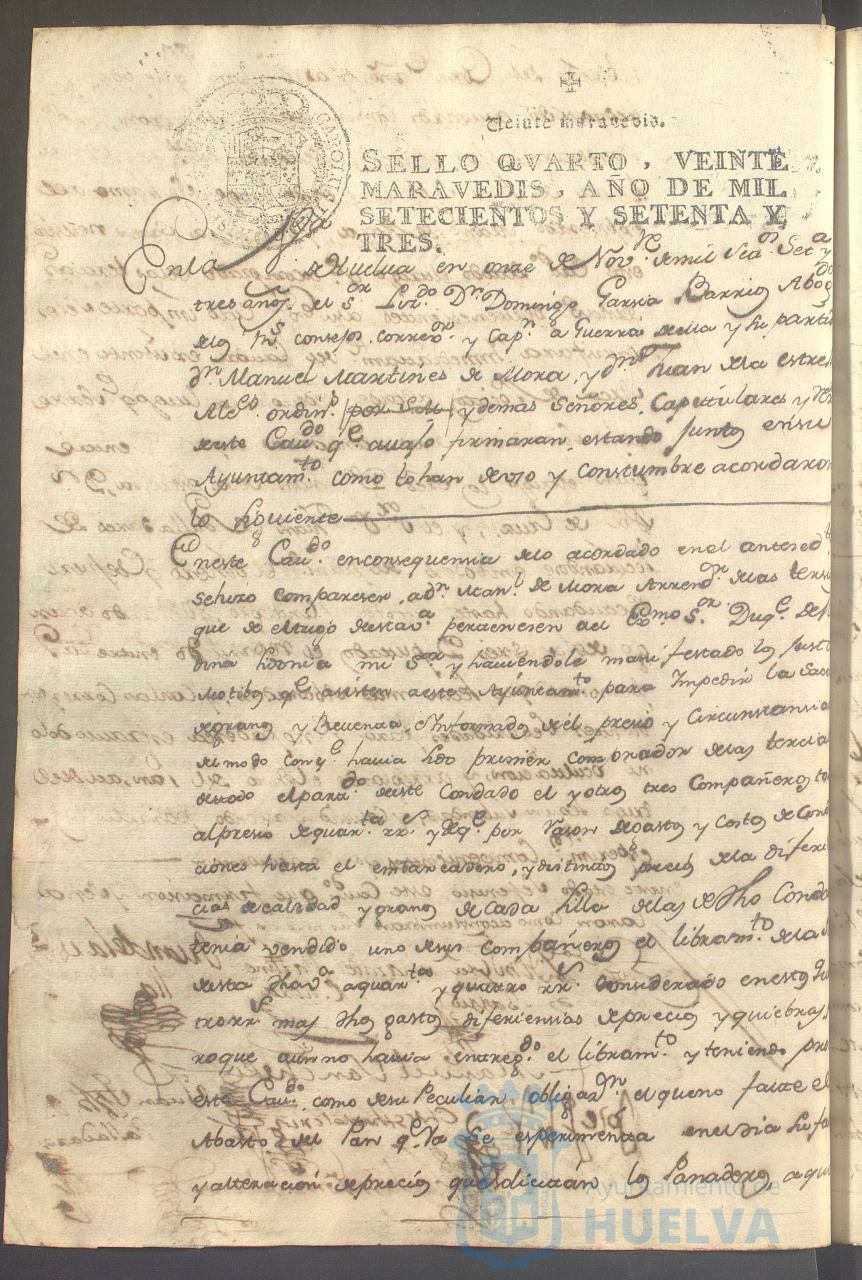 CAROLUS
Veinte maravedis.
SELLO QVARTO, VEINTE
MARAVEDIS, AÑO DE MIL
SETECIENTOS Y SETENTA Y
TRES.
En la Va. de Huelua en onze de Nov.re de mil Setos. Seta. y
tres años. el sor. Lizdo. Dn. Domingo Garzia Barrios Abogdo.
de los Rs. consejos, corregor. y Capn. a Guerra de ella y su partdo
dn. Manuel Martines de Mora, y dn. Juan de la estre
Alcs. ordins. y demas Señores, Capittulares y
de este Cavdo. qe. auajo firmaran, estando Juntos en su
Ayuntamto. como lo han de vso y constumbre acordaron
lo siguiente
En este Cavdo. en consequensia de lo acordado en el antesedte
se hizo compareser, a dn. Manl. de Mora Arrendor. de las tersi
que de el trigo de esta va. pertenesen al Exmo. Sor. Duqe. de M
dina Sidonia mi Sor. y hauiendole manifestado los Justi
Motibos qe. asisten a este Ayuntamto. para Impedir la Saca
de granos y Reuenta, e Informado de el presio y Circunstansia
de el modo con qe. hauia sido primer comprador de las tercia
de todo el partdo. de este Condado el y otros tres Compañeros
al presio de quarta. rrs. y qe. por rason de gastos y costos de Cond
ciones hasta el embarcadero, y distintos precios de la diferen
cias de calidad y granos de cada Villa de las de dho Conda
tenia vendido uno de sus compañeros el libramto. de la
de esta dha va. a quarta. y quatro rrs. considerado en estos
tro rrs. mas dhos gastos, diferiensias de precios y quiebras
ro que aun no hauia entregdo. el libramto. y teniendo pre
este Cavdo. como de su Peculiar obligaon. el que no falte el
Abasto del Pan qe. Ya se esperimenta en el dia su fa
y alteracion de precios que solicitan los Panaderos a que
Ayuntamiento de
HUELVA